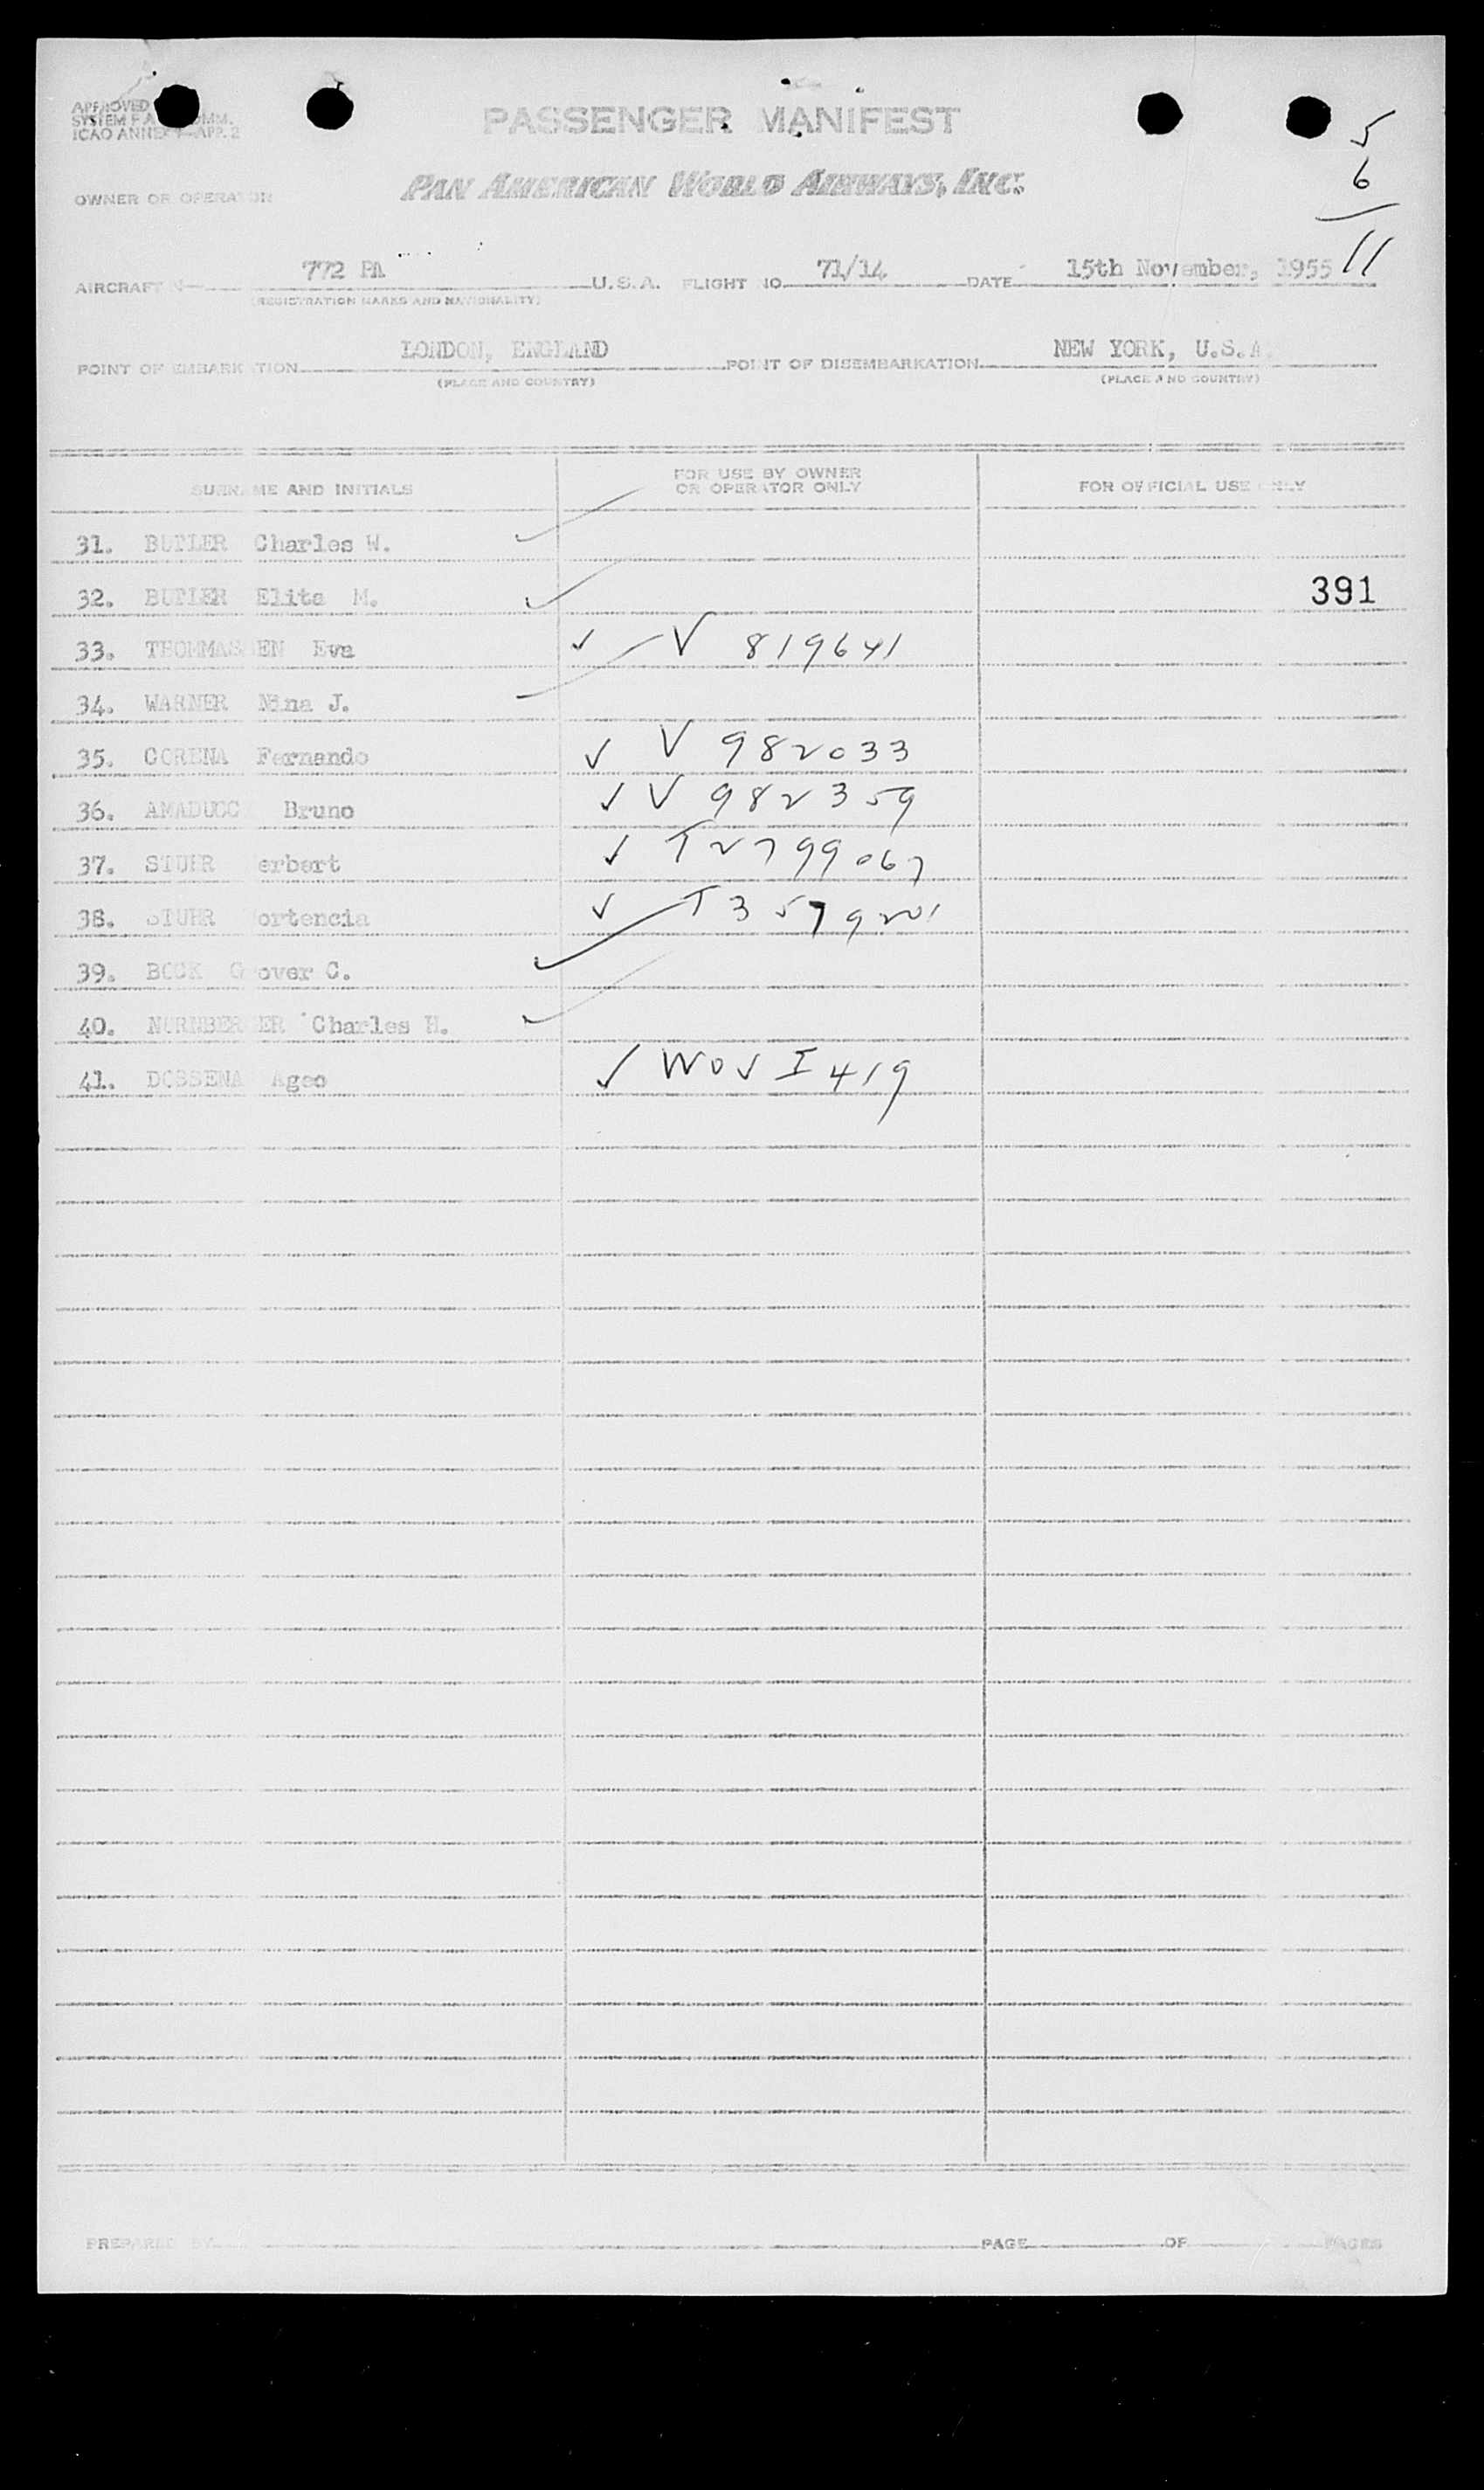 APPROVED
SYSTEM F A COMM.
ICAO ANNEX 9—APP. 2
PASSENGER MANIFEST
5
6
11
OWNER OR OPERATOR
PAN AMERICAN WORLD AIRWAYS, INC.
AIRCRAFT N 772 PA U.S.A. FLIGHT NO. 71/14 DATE 15th November, 1955
(REGISTRATION MARKS AND NATIONALITY)
POINT OF EMBARKATION LONDON, ENGLAND POINT OF DISEMBARKATION NEW YORK, U.S.A.
(PLACE AND COUNTRY) (PLACE AND COUNTRY)
SURNAME AND INITIALS FOR USE BY OWNER OR OPERATOR ONLY FOR OFFICIAL USE ONLY
31. BUTLER Charles W. ✓
32. BUTLER Elita M. ✓ 391
33. THOMMASSEN Eva ✓ V 819641
34. WARNER Nina J. ✓
35. CORENA Fernando ✓ V 982033
36. AMADUCC Bruno ✓ V 982359
37. STUHR erbert ✓ T2799067
38. STUHR ortencia ✓ T3579201
39. BOCK G over C. ✓
40. NURNBERGER Charles H. ✓
41. DOSSENA Ageo ✓ WOV I 419
PREPARED BY PAGE OF PAGES